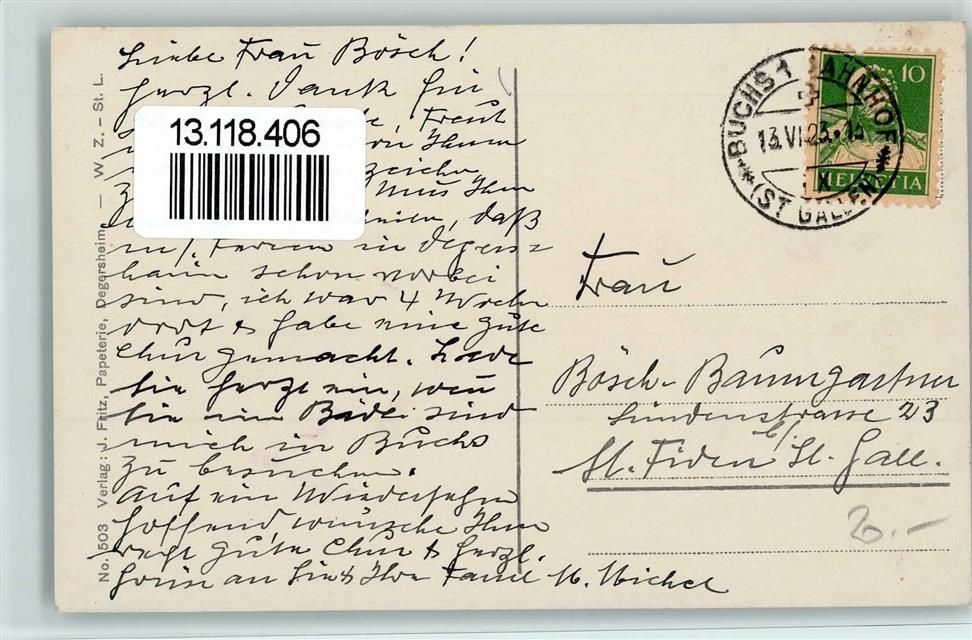 Liebe Frau Bösch!
Herzl. Dank für
Freud
von Ihnen
Muss Ihnen
daß
m/. Ferien in Degers-
heim schon vorbei
sind, ich war 4 Wochen
dort & habe eine gute
Chur gemacht. Lade
Sie herzl ein, wen
Sie im Bädli sind
mich in Buchs
zu besuchen.
Auf ein Wiedersehn
hoffend wünsche Ihnen
recht gute Chur & herzl.
an Sie & Ihre Famil M. Michel
13.118.406
No. 503 Verlag: J. Fritz, Papeterie, Degersheim — W. Z. – St. L.
BUCHS 1 BAHNHOF
13.VI.23.-13
(ST GALLEN)
10
HELVETIA
Frau
Bösch-Baumgartner
Lindenstrasse 23
St. Fiden b/ St. Gall.
20.-